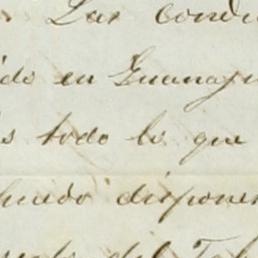 Las condu
ido en Guanaju
s todo lo que
puedo disponer
del